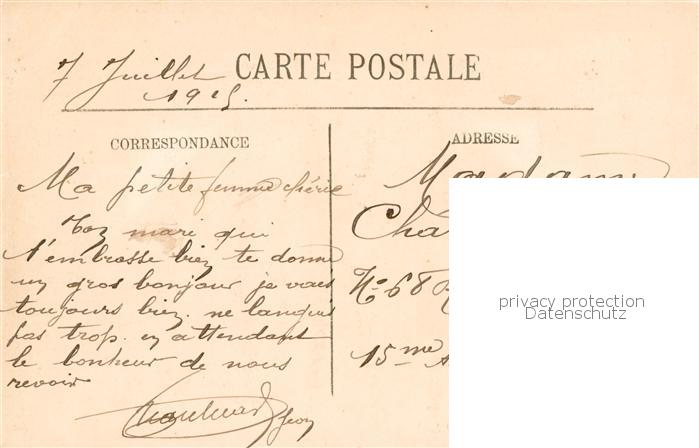 7 Juillet
1915.
CARTE POSTALE
CORRESPONDANCE
Ma petite femme chérie
Toz mari qui
t'embrasse biez te donne
uz gros bonjour je vais
toujours biez. ne languis
pas trop. ez attendant
le bonheur de nous
revoir
ADRESSE
Madame
Cha
No 68 R
15me A
privacy protection
Datenschutz